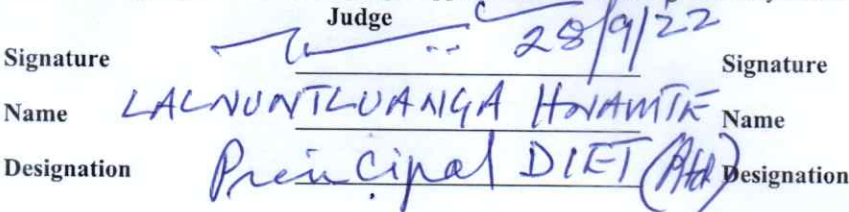 Judge
Signature 28/9/22 Signature
Name LALNUNTLUANGA HNAMTE Name
Designation Principal DIET (Rtd) Designation